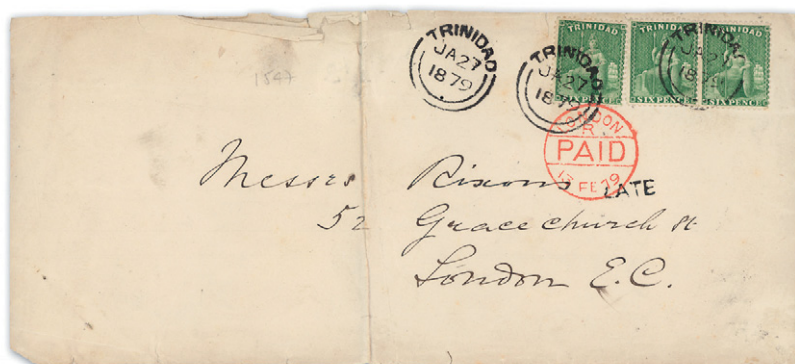 TRINIDAD
JA 27
1879
TRINIDAD
JA 27
1879
TRINIDAD
SIX PENCE
TRINIDAD
SIX PENCE
TRINIDAD
SIX PENCE
TRINIDAD
JA 27
1879
LONDON
PAID
FE 79
LATE
Messrs Rixons
52 Gracechurch St
London E.C.